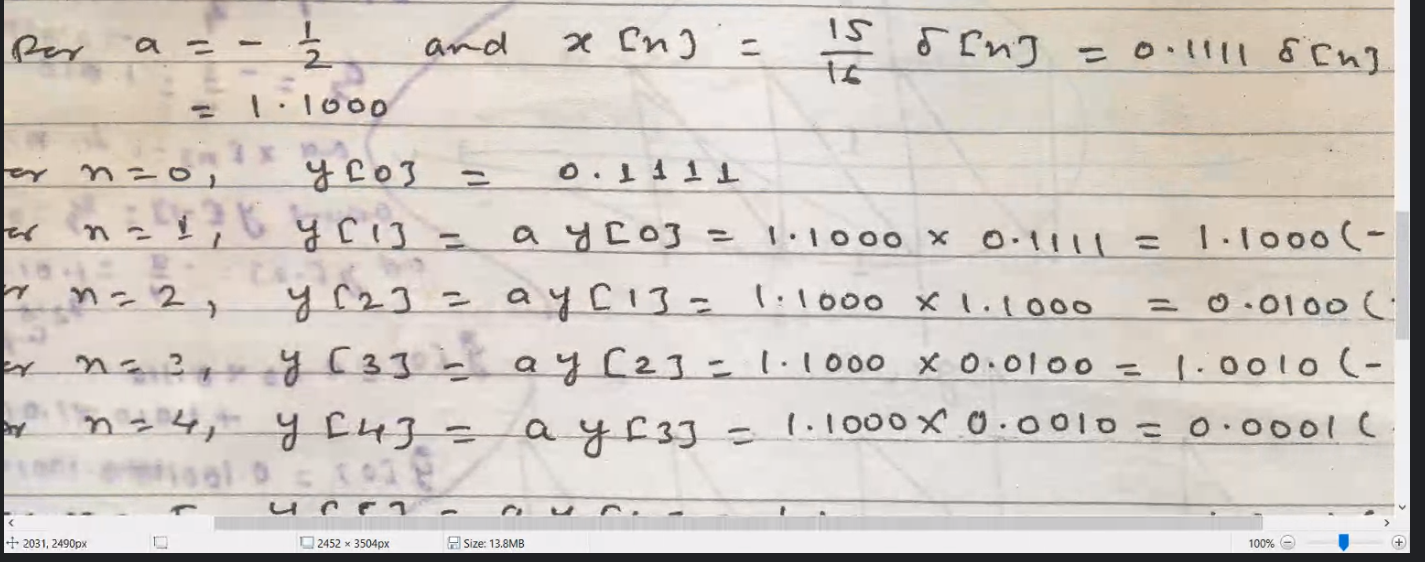 For a = - 1/2 and x[n] = 15/16 δ[n] = 0.1111 δ[n]
= 1.1000
or n=0, y[0] = 0.1111
or n=1, y[1] = a y[0] = 1.1000 × 0.1111 = 1.1000 (-
r n=2, y[2] = a y[1] = 1.1000 × 1.1000 = 0.0100 (
er n=3, y[3] = a y[2] = 1.1000 × 0.0100 = 1.0010 (-
or n=4, y[4] = a y[3] = 1.1000 × 0.0010 = 0.0001 (
2031, 2490px 2452 × 3504px Size: 13.8MB 100%